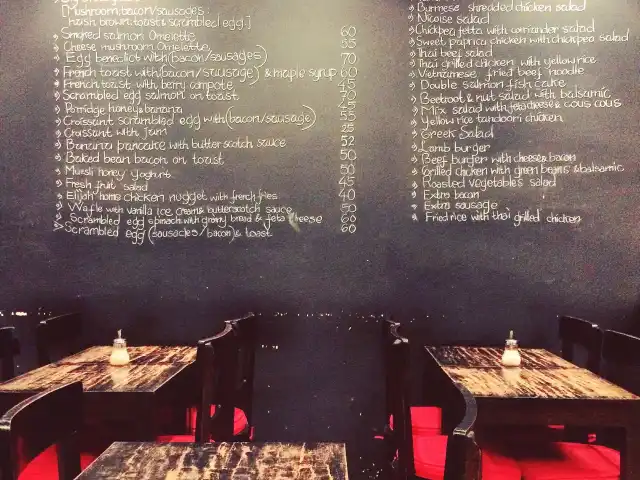 [Mushroom, bacon/sausages,
hash brown, toast & scrambled egg]
Smoked salmon Omelette 60
Cheese mushroom Omelette 55
Egg benedict with (bacon/sausages) 70
French toast with (bacon/sausage) & maple syrup 60
French toast with berry compote 45
Scrambled egg salmon on toast
Porridge honey & banana 45
Croissant scrambled egg with (bacon/sausage) 55
Croissant with jam 25
Banana pancake with butterscotch sauce 52
Baked bean bacon on toast 50
Muesli honey yoghurt 50
Fresh fruit salad 45
Elijah home chicken nugget with french fries 40
Wafle with vanilla ice cream & butterscotch sauce 50
Scrambled egg spinach with grainy bread & feta cheese 60
Scrambled egg (sausages/bacon) & toast 60
Burmese shredded chicken salad
Nicoise salad
Chickpea fetta with coriander salad
Sweet paprica chicken with chickpea salad
Thai beef salad
Thai grilled chicken with yellow rice
Vietnamese fried beef noodle
Double salmon fish cake
Beetroot & nut salad with balsamic
Mix salad with feta cheese & cous cous
Yellow rice tandoori chicken
Greek Salad
Lamb burger
Beef burger with cheese & bacon
Grilled chicken with green beans & balsamic
Roasted vegetables salad
Extra bacon
Extra sausage
Fried rice with thai grilled chicken